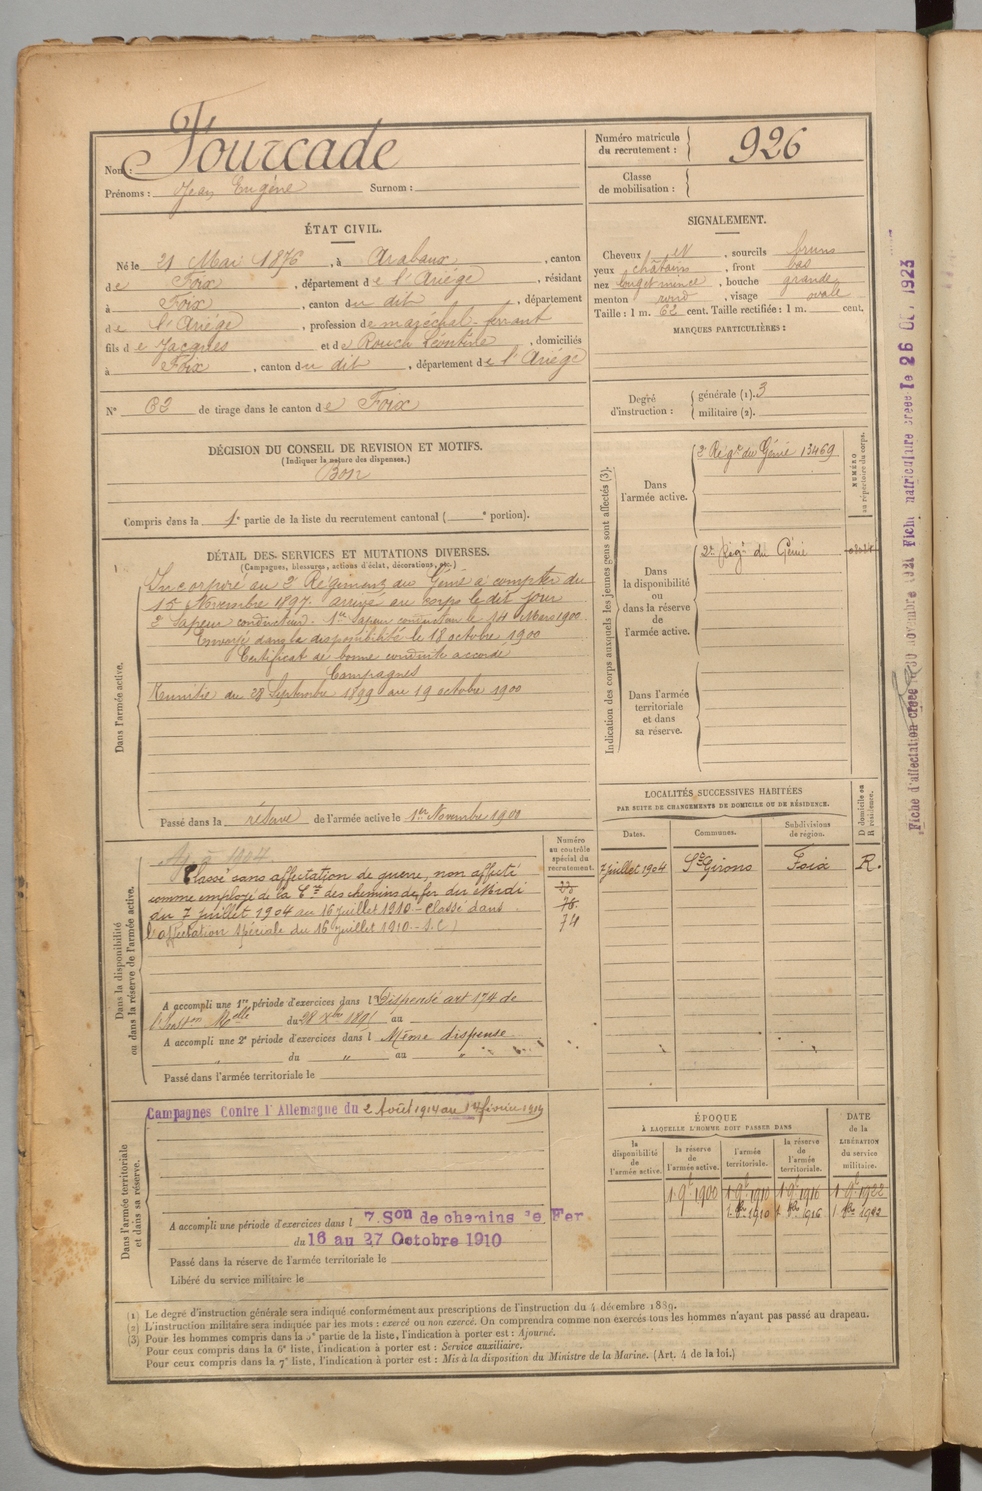 Nom : Fourcade
Prénoms : Jean Eugène Surnom :
Numéro matricule du recrutement : 926
Classe de mobilisation :
ÉTAT CIVIL.
Né le 21 Mai 1876, à Arabaux, canton
de Foix, département de l'Ariège, résidant
à Foix, canton du dit, département
de l'Ariège, profession de maréchal-ferrant
fils de Jacques et de Rouch Léontine, domiciliés
à Foix, canton du dit, département de l'Ariège
N° 63 de tirage dans le canton de Foix
SIGNALEMENT.
Cheveux N, sourcils bruns
yeux châtains, front bas
nez long et mince, bouche grande
menton rond, visage ovale
Taille : 1 m. 62 cent. Taille rectifiée : 1 m. cent.
MARQUES PARTICULIÈRES :
Degré d'instruction : générale (1). 3
militaire (2).
DÉCISION DU CONSEIL DE REVISION ET MOTIFS.
(Indiquer la nature des dispenses.)
Bon
Compris dans la 1e partie de la liste du recrutement cantonal ( e portion).
DÉTAIL DES SERVICES ET MUTATIONS DIVERSES.
(Campagnes, blessures, actions d'éclat, décorations, etc.)
Dans l'armée active.
Incorporé au 2e Régiment du Génie à compter du
15 Novembre 1897. arrivé au corps le dit jour
2e Sapeur conducteur. 1er Sapeur conducteur le 14 Mars 1900
Envoyé dans la disponibilité le 18 octobre 1900
Certificat de bonne conduite accordé
Campagnes
du 28 Septembre 1899 au 19 octobre 1900
Passé dans la réserve de l'armée active le 1er Novembre 1900
Indication des corps auxquels les jeunes gens sont affectés (3).
Dans l'armée active.
2e Régt du Génie 13469
NUMÉRO au répertoire du corps.
Dans la disponibilité ou dans la réserve de l'armée active.
2e Régt du Génie
Dans l'armée territoriale et dans sa réserve.
LOCALITÉS SUCCESSIVES HABITÉES
PAR SUITE DE CHANGEMENTS DE DOMICILE OU DE RÉSIDENCE.
Dates. Communes. Subdivisions de région. D domicile ou R résidence.
7 juillet 1904 St Girons Foix R.
Dans la disponibilité ou dans la réserve de l'armée active.
Numéro au contrôle spécial du recrutement.
1904
Classé sans affectation de guerre, non affecté
comme employé de la Cie des chemins de fer du Midi
du 7 juillet 1904 au 16 juillet 1910 - Classé dans
l'affectation spéciale du 16 juillet 1910 - S.C.
76
74
A accompli une 1re période d'exercices dans l Dispensé art 174 de
l'Inston Melle du 28 Xbre 1895 au
A accompli une 2e période d'exercices dans l Même dispense
du " au "
Passé dans l'armée territoriale le
Dans l'armée territoriale et dans sa réserve.
Campagnes Contre l'Allemagne du 2 Août 1914 au 1er février 1919
A accompli une période d'exercices dans l 7e Son de chemins de Fer
du 16 au 27 Octobre 1910
Passé dans la réserve de l'armée territoriale le
Libéré du service militaire le
ÉPOQUE
À LAQUELLE L'HOMME DOIT PASSER DANS
la disponibilité de l'armée active. la réserve de l'armée active. l'armée territoriale. la réserve de l'armée territoriale.
DATE de la LIBÉRATION du service militaire.
1 9bre 1900 1 9bre 1910 1 9bre 1916 1 9bre 1922
1 8bre 1910 1 8bre 1916 1 8bre 1922
(1) Le degré d'instruction générale sera indiqué conformément aux prescriptions de l'instruction du 4 décembre 1889.
(2) L'instruction militaire sera indiquée par les mots : exercé ou non exercé. On comprendra comme non exercés tous les hommes n'ayant pas passé au drapeau.
(3) Pour les hommes compris dans la 5e partie de la liste, l'indication à porter est : Ajourné.
Pour ceux compris dans la 6e liste, l'indication à porter est : Service auxiliaire.
Pour ceux compris dans la 7e liste, l'indication à porter est : Mis à la disposition du Ministre de la Marine. (Art. 4 de la loi.)
Fiche d'affectation créée le 30 novembre 1921 Fiche matriculaire créée le 26 Oct 1923